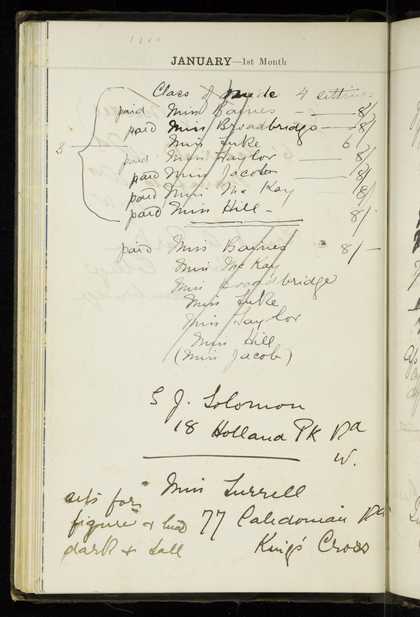 JANUARY—1st Month
Class of nude 4 sittings
paid Miss Barnes — 8/
paid Miss Broadbridge — 8/
Miss Fuke 8 6
paid Miss Taylor — 8/
paid Miss Jacobs — 8/
paid Miss McKay 8/
paid Miss Hill - 8/-
3
paid Miss Barnes 8/-
Miss McKay
Miss Broadbridge
Miss Fuke
Miss Taylor
Miss Hill
(Miss Jacob)
S J. Solomon
18 Holland Pk Rd
W.
Miss Turrell
sits for
figure & head
dark & tall
77 Caledonian Rd
King's Cross